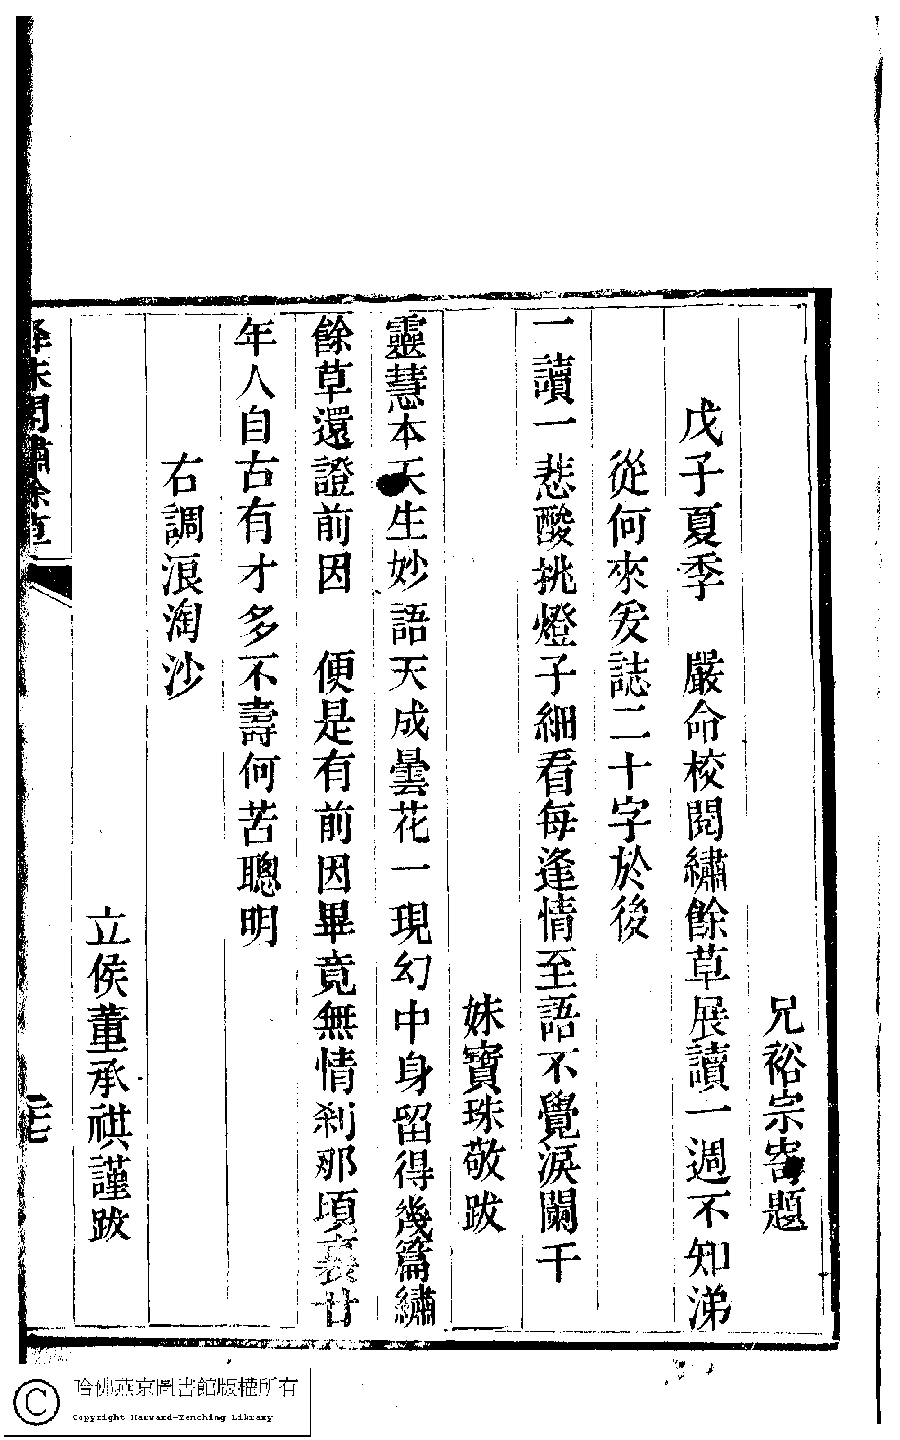 兄裕宗寄題
戊子夏季　嚴命校閱繡餘草展讀一週不知涕
從何來爰誌二十字於後
一讀一悲酸挑燈子細看每逢情至語不覺淚闌干
妹寶珠敬跋
靈慧本天生妙語天成曇花一現幻中身留得幾篇繡
餘草還證前因　便是有前因畢竟無情刹那頃裏廿
年人自古有才多不壽何苦聰明
右調浪淘沙
立侯董承祺謹跋
繡餘草
哈佛燕京圖書館版權所有
Copyright Harvard-Yenching Library